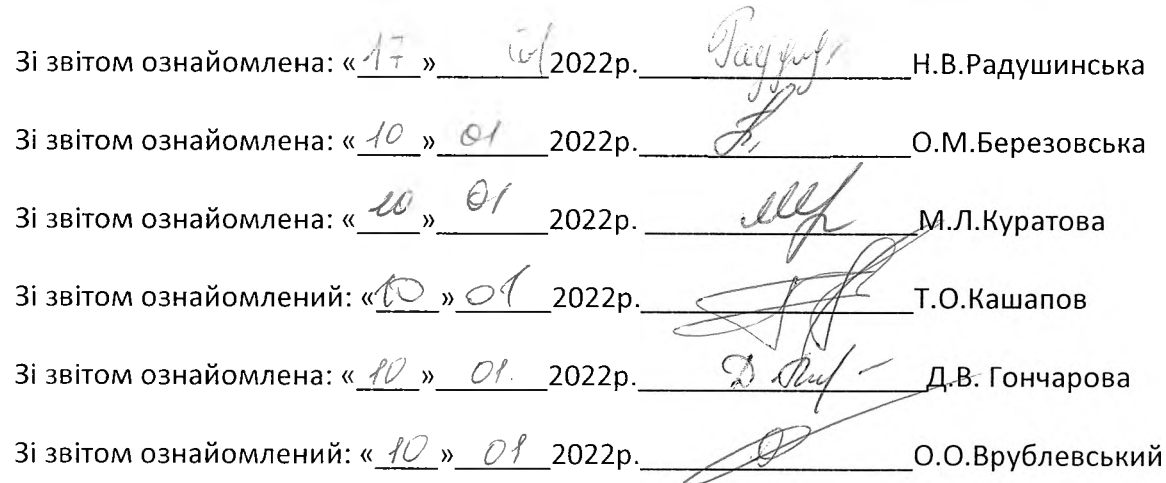 Зі звітом ознайомлена: «17» 01 2022р. Н.В.Радушинська
Зі звітом ознайомлена: «10» 01 2022р. О.М.Березовська
Зі звітом ознайомлена: «10» 01 2022р. М.Л.Куратова
Зі звітом ознайомлений: «10» 01 2022р. Т.О.Кашапов
Зі звітом ознайомлена: «10» 01. 2022р. Д.В. Гончарова
Зі звітом ознайомлений: «10» 01 2022р. О.О.Врублевський